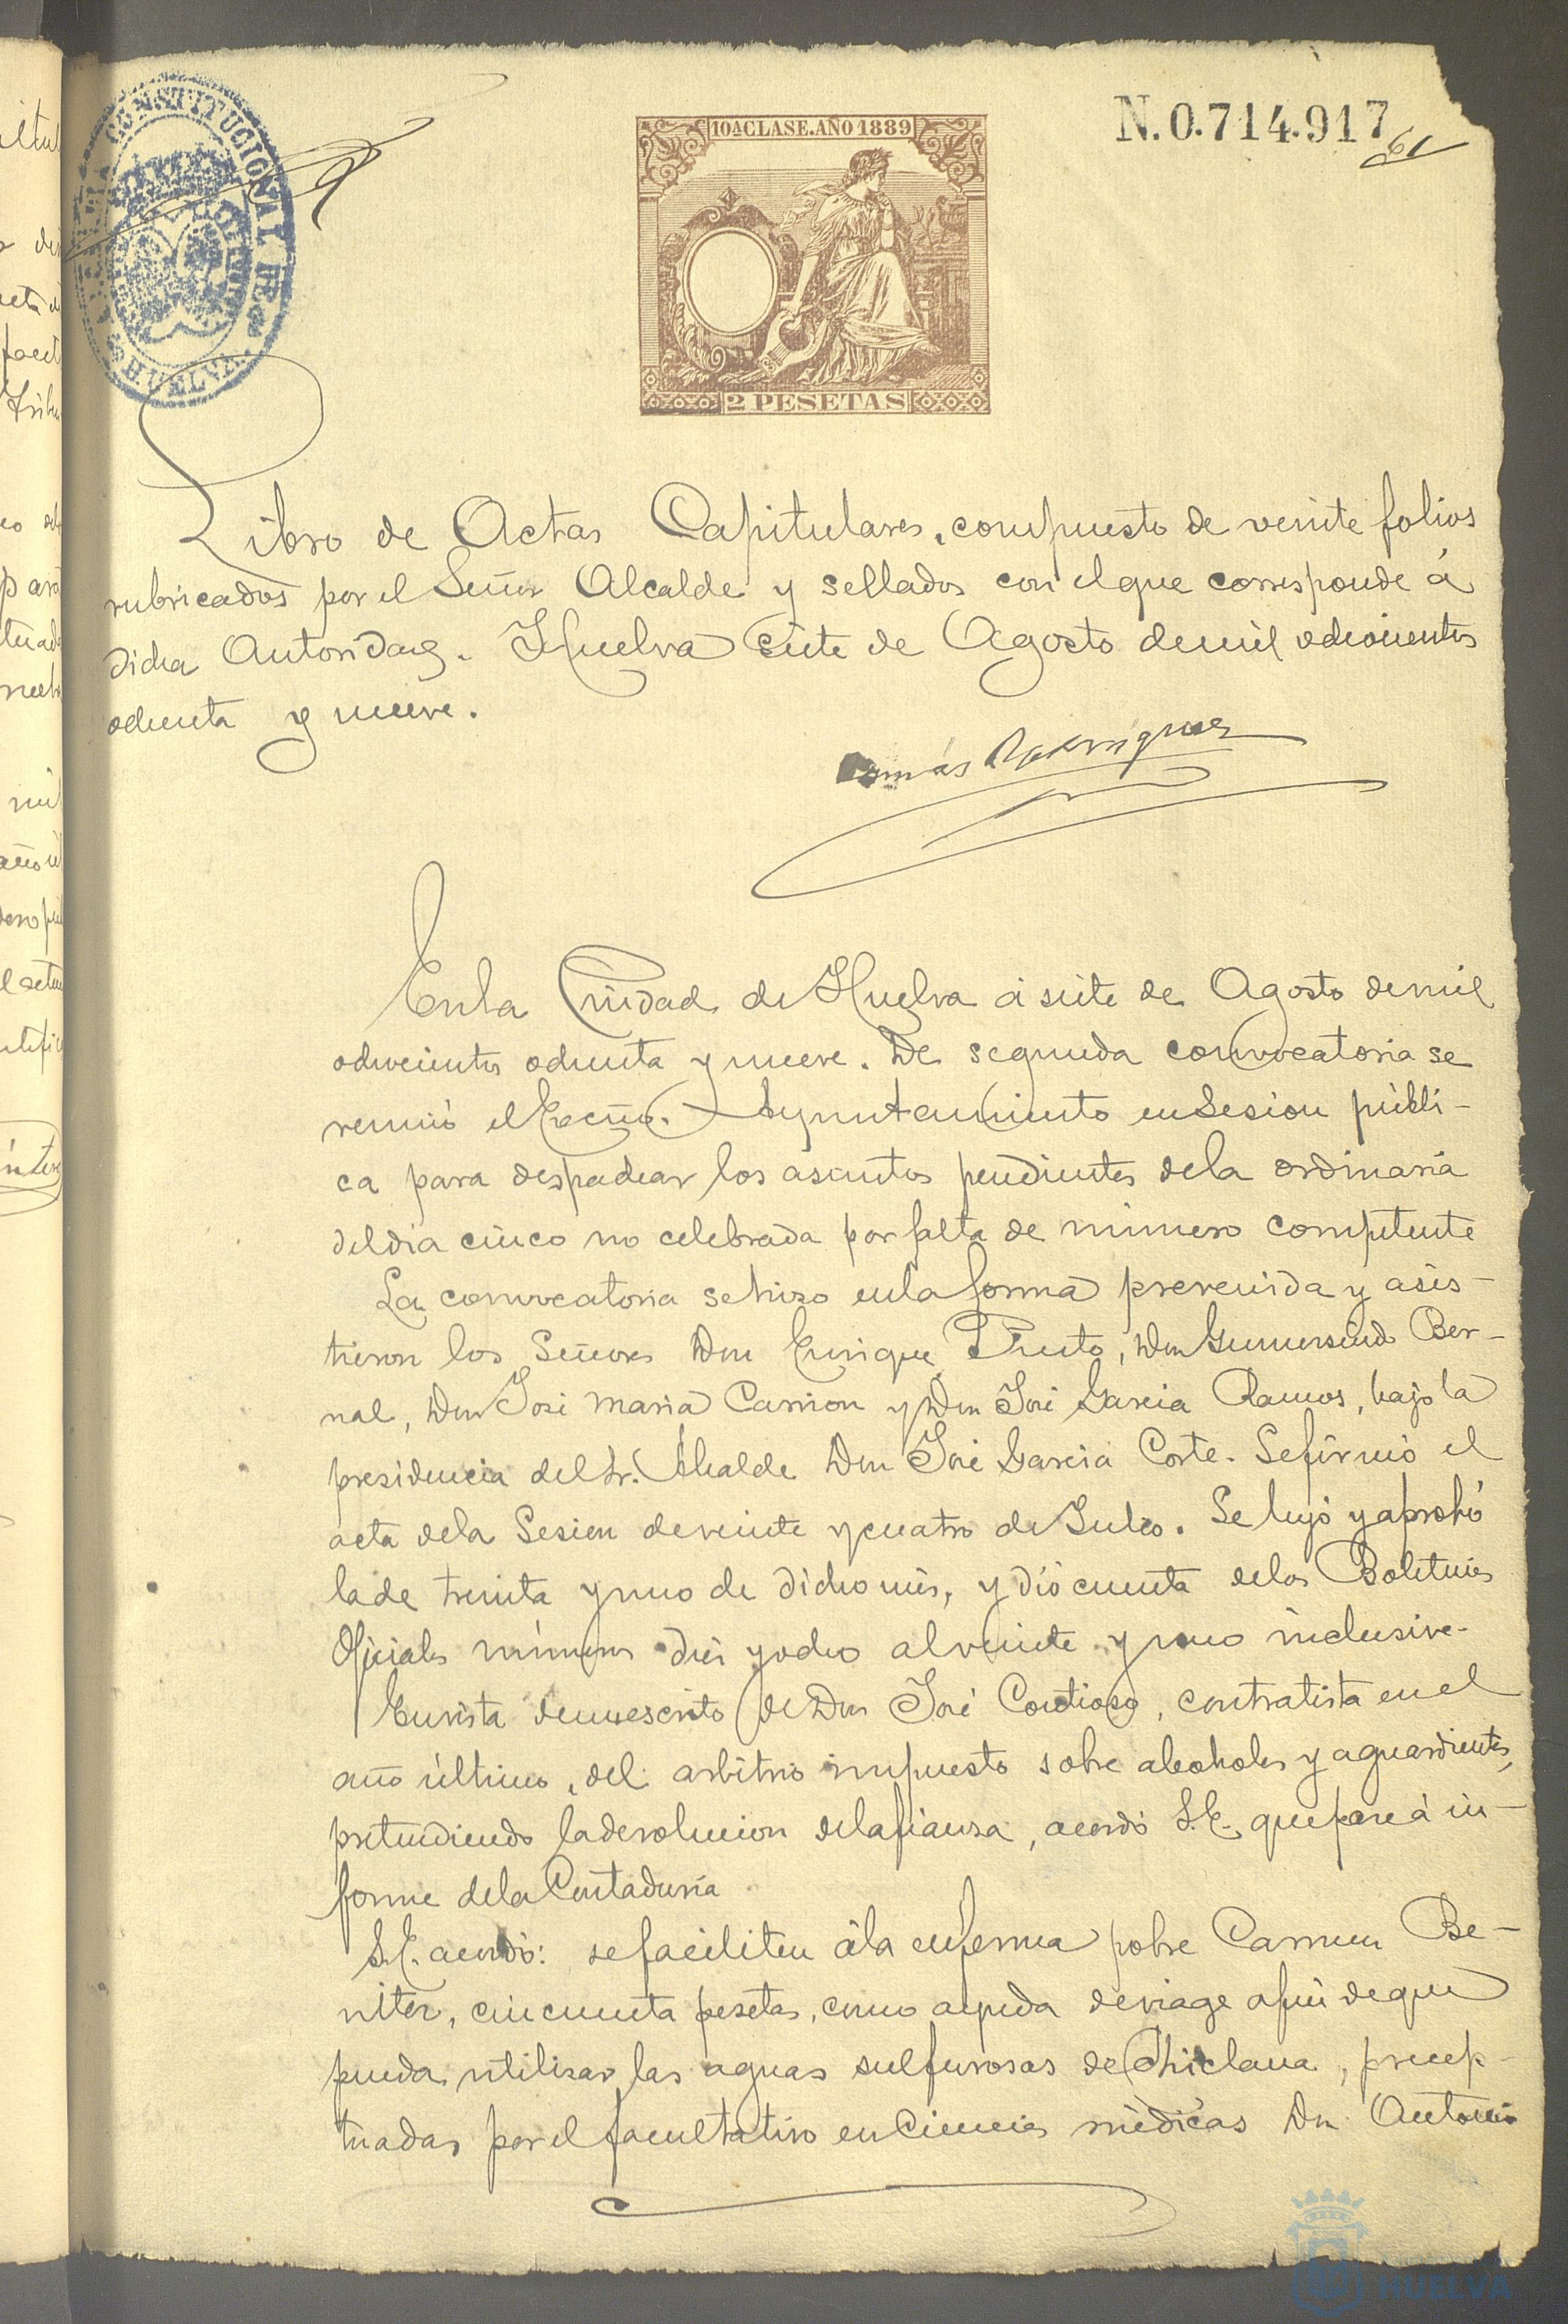 10ª CLASE. AÑO 1889
N. 0.714.917
61
ALCALDIA CONSTITUCIONAL DE
HUELVA
2 PESETAS
Libro de Actas Capitulares, compuesto de veinte folios
rubricados por el Señor Alcalde y sellados con el que corresponde á
dicha Autoridad. Huelva siete de Agosto de mil ochocientos
ochenta y nueve.
Tomás Rodriguez
En la Ciudad de Huelva á siete de Agosto de mil
ochocientos ochenta y nueve. De segunda convocatoria se
reunió el Excmo. Ayuntamiento en Sesion públi-
ca para despachar los asuntos pendientes de la ordinaria
del dia cinco no celebrada por falta de número competente
La convocatoria se hizo en la forma prevenida y asis-
tieron los Señores Don Enrique Prieto, Don Gumersindo Ber-
nal, Don José Maria Carrion y Don José Garcia Ramos, bajo la
presidencia del Sr. Alcalde Don José Garcia Corte. Se firmó el
acta de la Sesion de veinte y cuatro de Julio. Se leyó y aprobó
la de treinta y uno de dicho mes, y dió cuenta de los Boletines
Oficiales números diez y ocho al veinte y uno inclusive.
En vista de un escrito de Don José Contioso, contratista en el
año último, del arbitrio impuesto sobre alcoholes y aguardientes,
pretendiendo la devolucion de la fianza, acordó S.E. que pase á in-
forme de la Contaduria
S.E. acordó: se faciliten á la enferma pobre Carmen Be-
nitez, cincuenta pesetas, como ayuda de viage a fin de que
pueda utilizar las aguas sulfurosas de Chiclana, precep-
tuadas por el facultativo en Ciencias médicas Dn. Antonio
HUELVA